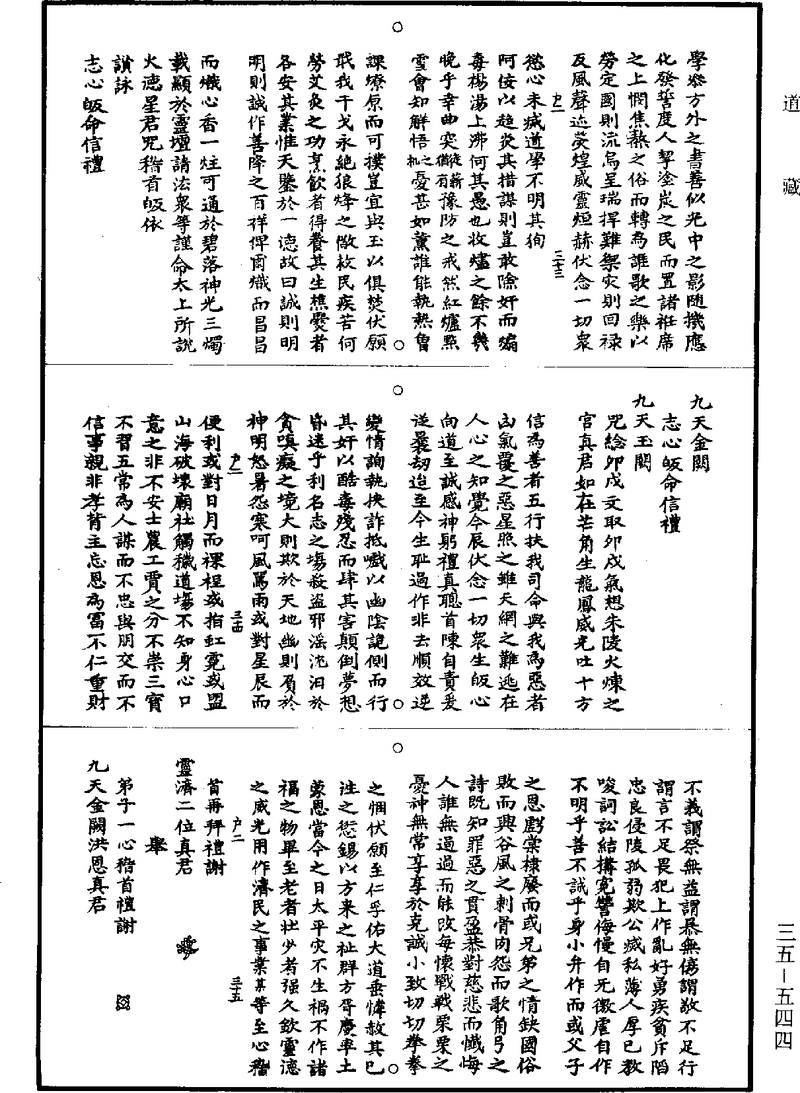 道藏
學參方外之書善似光中之影隨機應
化發誓度人拏塗炭之民而置諸袵席
之上憫焦熱之俗而轉為謳歌之樂以
勞定國則流烏呈瑞捍難禦灾則回祿
反風聲迹熒煌威靈烜赫伏念一切衆
愆心未臧道學不明其徇
戶二 三十三
阿佞以趋炎其措謀則豈敢除奸而煽
毒楊湯上沸何其愚也收燼之餘不幾
晚乎幸曲突徙薪猶有豫防之戒然紅爐點
雪會知解悟之憂甚如薰誰能執熱魯
誒燎原而可撲豈宜與玉以俱焚伏願
戢我干戈永絕狼烽之儆救民疾苦何
勞艾灸之功烹飲者得養其生樵爨者
各安其業惟天鑒於一德故曰誠則明
明則誠作善降之百祥俾爾熾而昌昌
而熾心香一炷可通於碧落神光三燭
載顯於靈壇請法衆等謹命太上所說
火德星君咒稽首皈依
讃詠
志心皈命信禮
九天金闕
志心皈命信禮
九天玉闕
咒絵卯戌文取卯戌氣想朱陵火煉之
宮真君如在芒角生龍鳳威光吐十方
信為善者五行扶我司命與我為惡者
凶氣覆之惡星照之雖天網之難逃在
人心之知覺今辰伏念一切衆生皈心
向道至誠感神躬禮真聰首陳自責爰
從曩劫迨至今生耻過作非去順效逆
變情詢執挾詐抵巇以幽陰詭側而行
其奸以酷毒殘忍而肆其害顛倒夢想
昏迷乎利名志之塲殺盜邪滛沈汨於
貪嗔癡之境大則欺於天地幽則屓於
神明怒暑怨寒呵風罵雨或對星辰而
戶二 三十四
便利或對日月而裸裎或指虹霓或盟
山海破壞廟社觸穢道場不知身心口
意之非不安士農工賈之分不崇三寳
不習五常為人謀而不忠與朋交而不
信事親非孝背主忘恩為富不仁重財
不義謂祭無益謂暴無傷謂敬不足行
謂言不足畏犯上作亂好勇疾貧斥陷
忠良侵陵孤弱欺公滅私薄人厚已教
唆詞訟結構冤讐侮慢自兀徵虐自作
不明乎善不誠乎身小弁作而或父子
之恩虧棠棣廢而或兄弟之情鈌國俗
敗而興谷風之刺骨肉怨而歌角弓之
詩既知罪惡之貫盈恭對慈悲而懴悔
人誰無過過而能改每懷戰戰栗栗之
憂神無常享享於克誠小致切切拳拳
之悃伏願至仁孚佑大道垂慈赦其已
徃之愆錫以方来之祉群方胥慶率土
蒙恩當今之日太平灾不生禍不作諸
福之物畢至老者壮少者强久欽靈德
之威光用作濟民之事業某等至心稽
戶二 三十五
首再拜禮謝
靈濟二位真君
舉
弟子一心稽首禮謝
九天金闕洪恩真君
三五—五四四